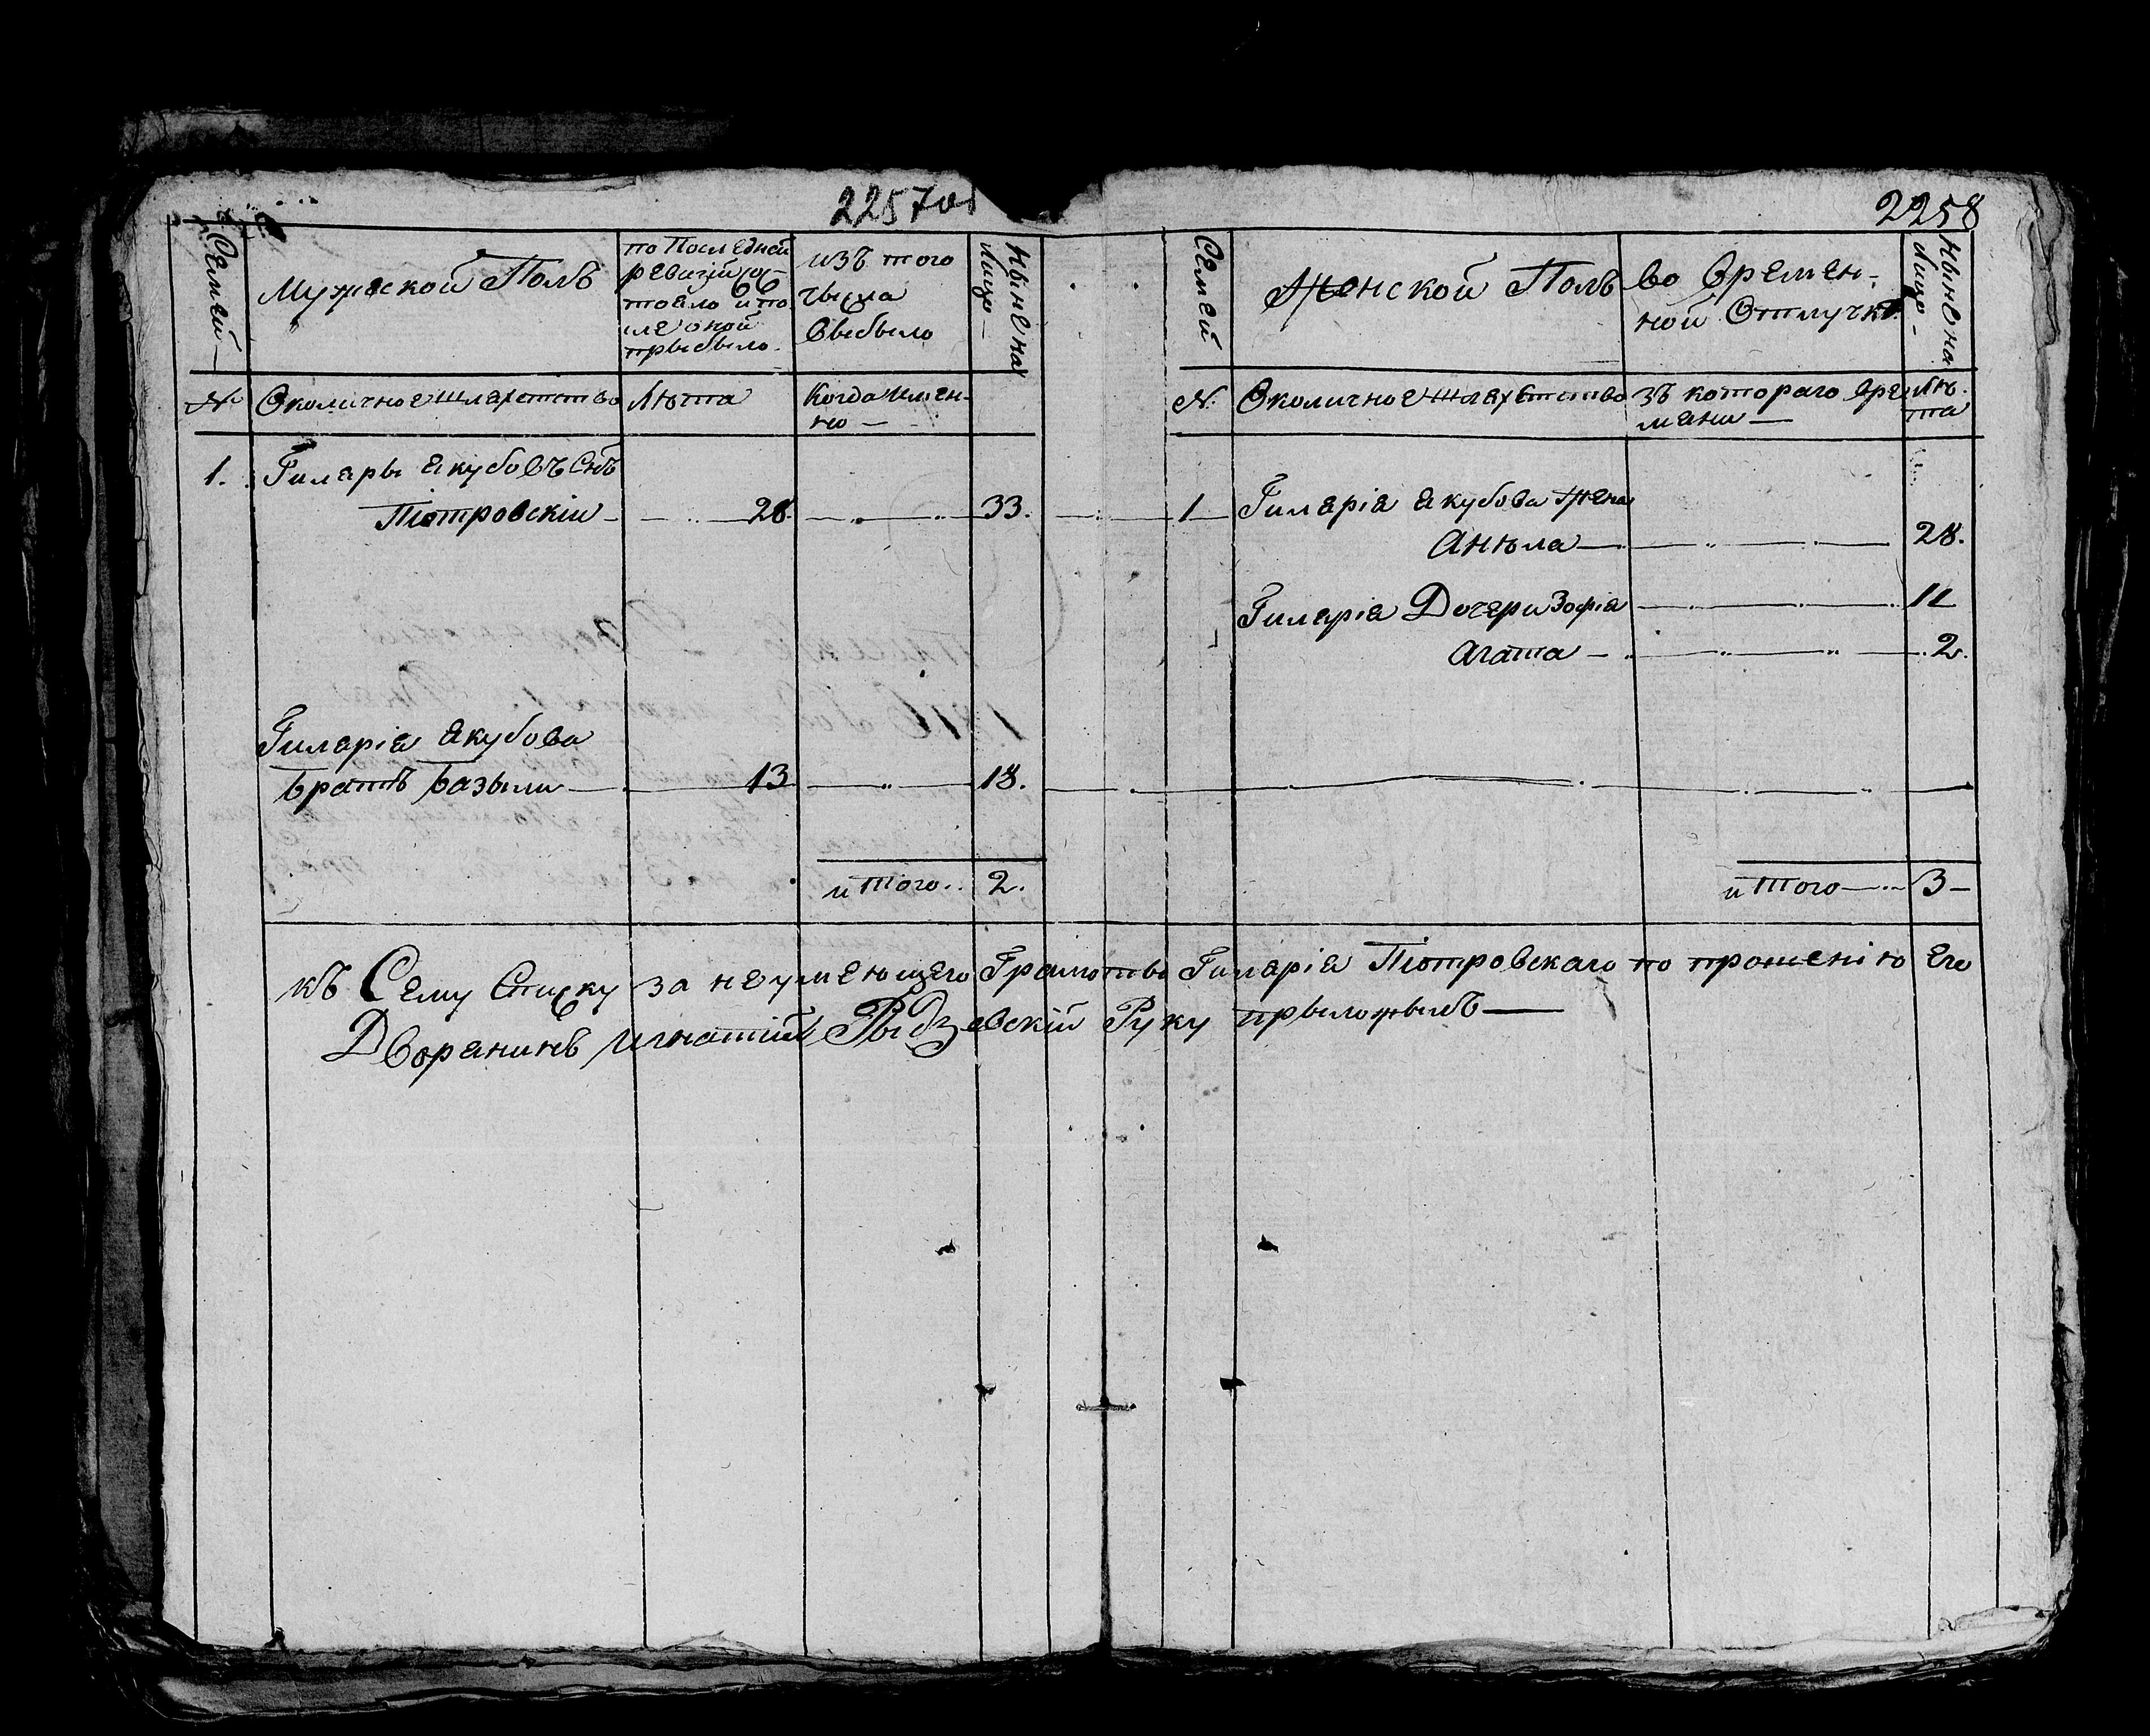 2257об
2258
Семей
Мужеской Полъ
по Последней
ревизий со-
тояло и по
сле оной
прыбыло
изъ того
чысла
выбыло
Ныне на
лицо
№
Околичное шляхетство
Лѣта
Когда имен-
но
1.
Гиляры Якубовъ Снъ
Піотровскій
28.
33.
Гиляріа Якубова
Братъ Базыли
13
18.
итого
2.
Семей
Женской Полъ
во времен-
ной отлучкѣ
Ныне на
лицо
№
Околичное шляхетство
зъ котораго вре
мени
Лѣ-
та
1
Гиляріа Якубова Жена
Анѣла
28.
Гиляріа Дочери Зофіа
11
Агата
2.
итого
3
къ Сему Списку за неумеющего Грамоты Гиляріа Піотровскаго по прошенію Его
Дворанинъ Игнатій Рыдзевскій Руку прыложылъ